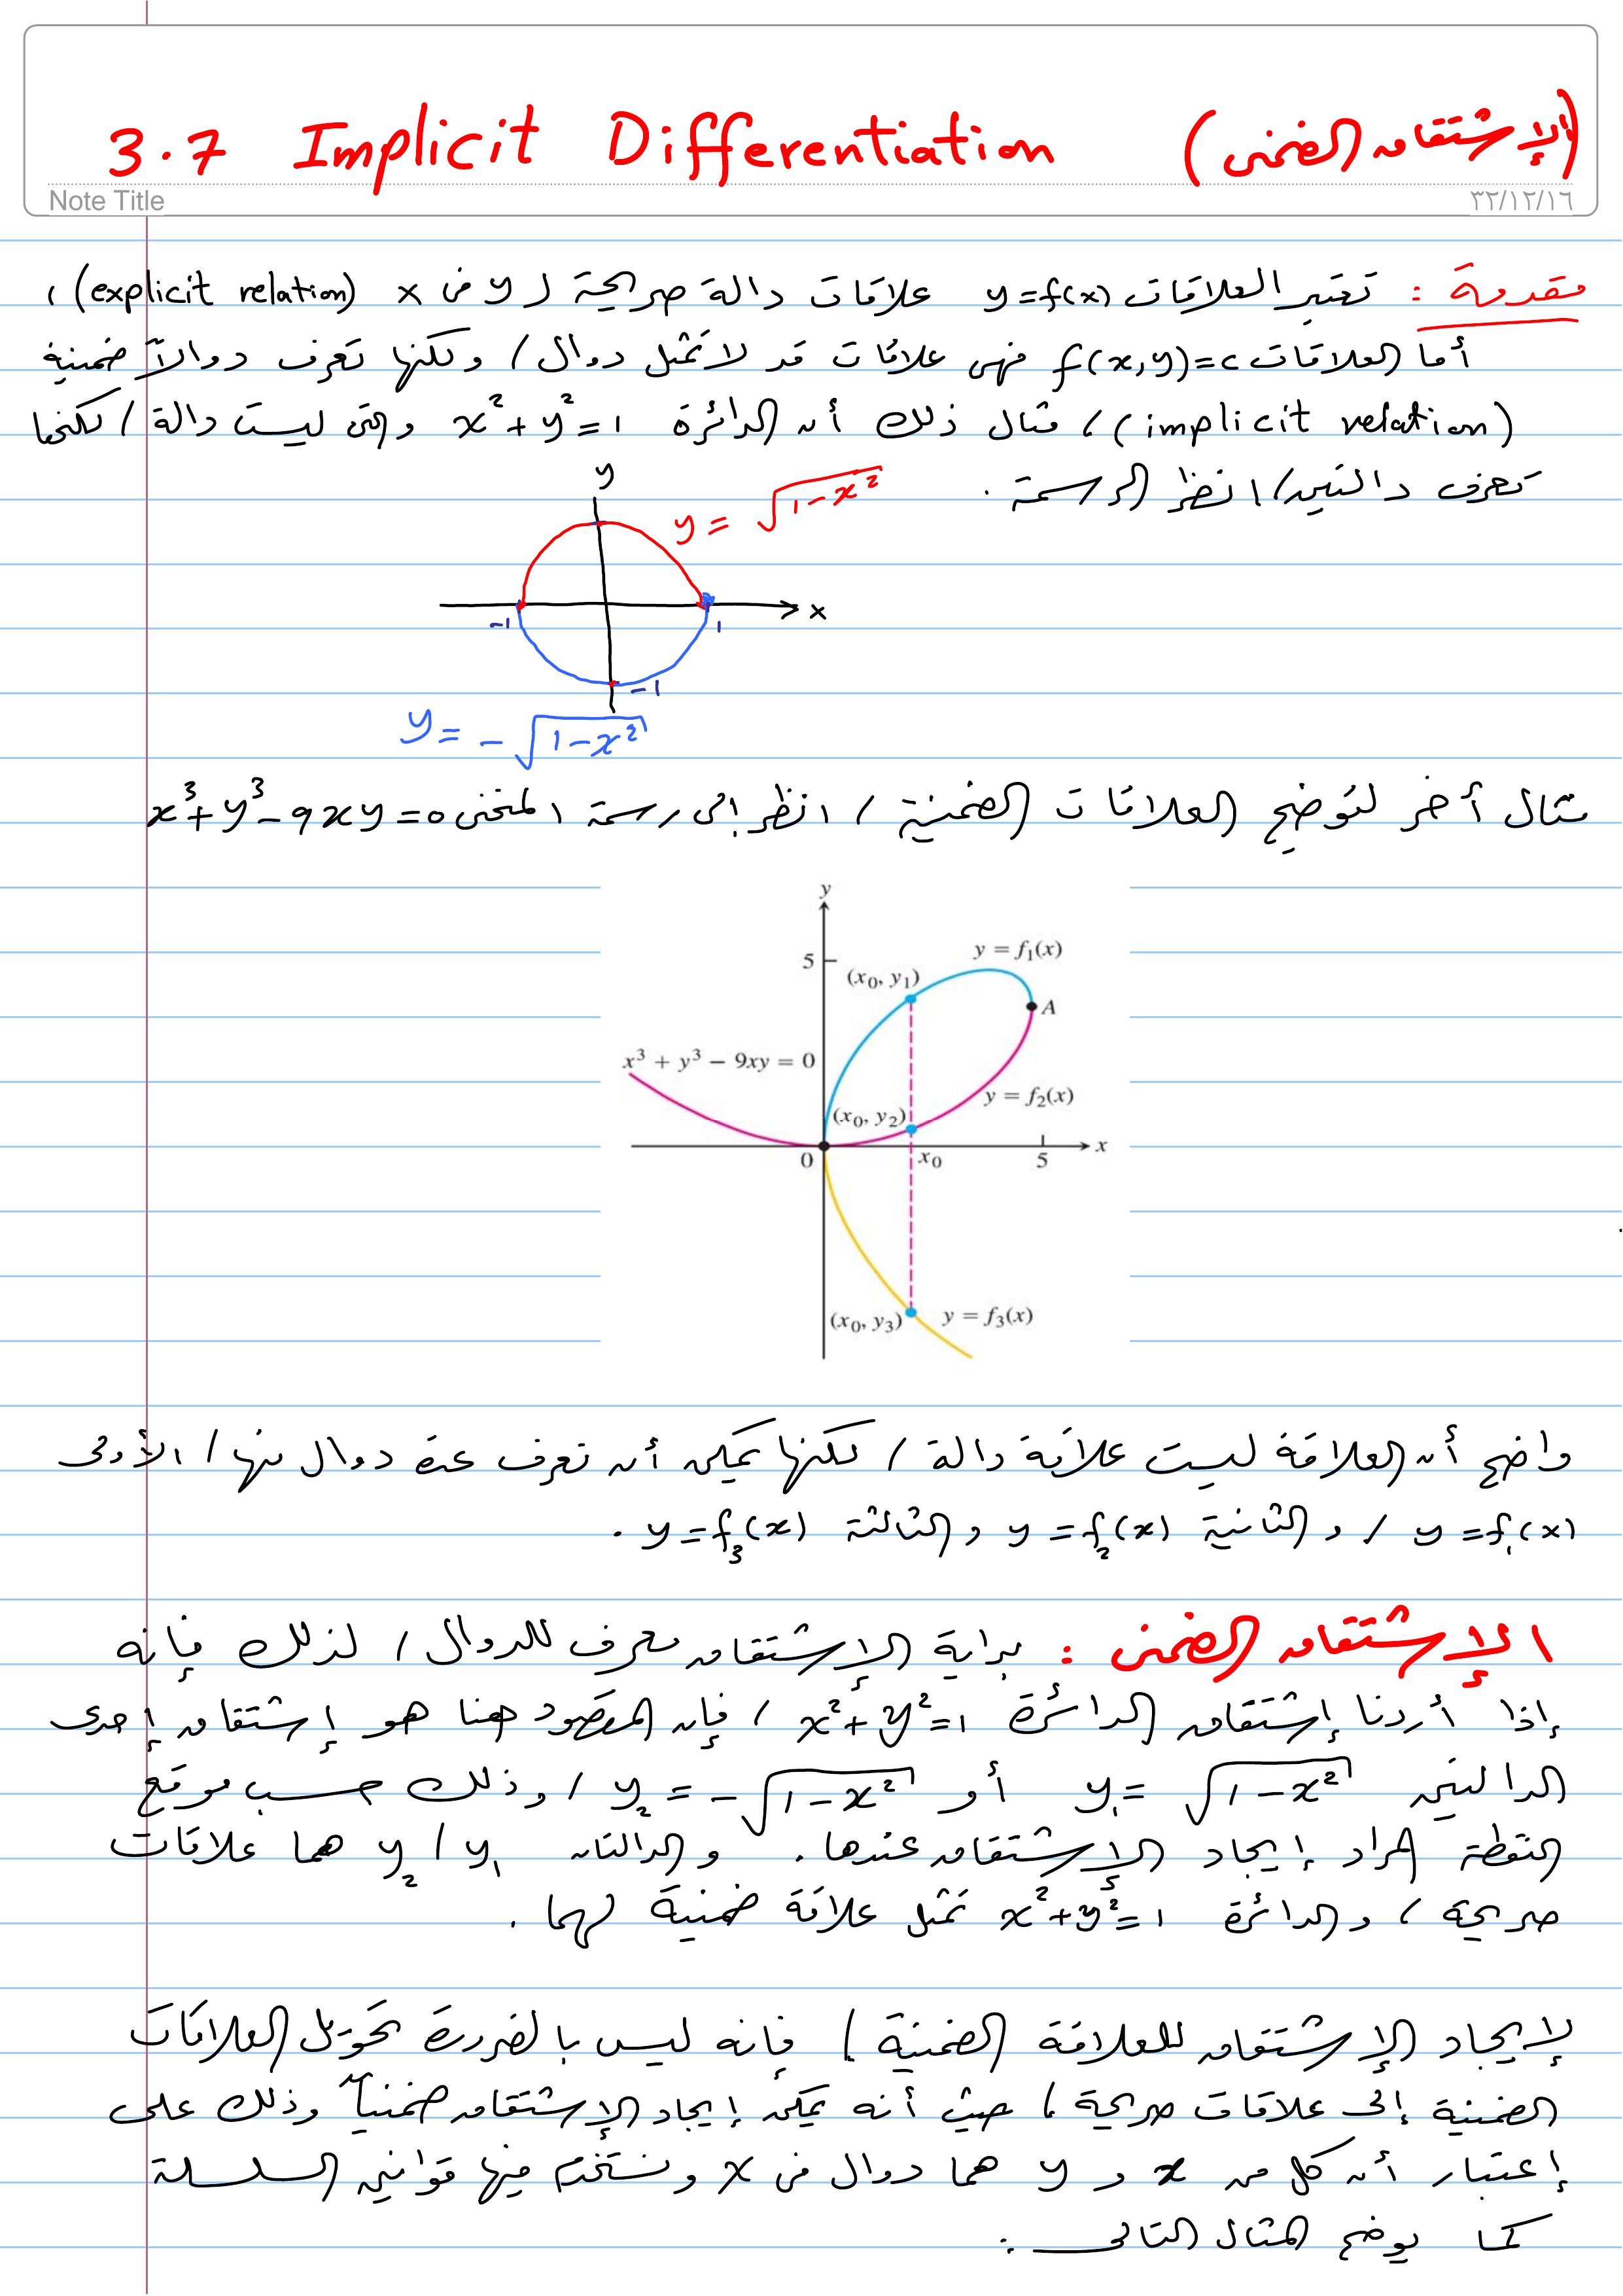 3.7 Implicit Differentiation (الإشتقاق الضمني)
Note Title
٣٢/١٢/١٦
مقدمة : تعتبر العلاقات y=f(x) علاقات دالة صريحة لـ y في x (explicit relation) ،
أما العلاقات f(x,y)=c فهي علاقات قد لا تمثل دوال ، ولكنها تعرف دوالاً ضمنية
(implicit relation) ، مثال ذلك أن الدائرة x²+y²=1 والتي ليست دالة ، لكنها
تعرف دالتين ، انظر الرسمة .
y
y = √(1-x²)
x
-1
1
-1
y = -√(1-x²)
مثال أخر لتوضيح العلاقات الضمنية ، انظر إلى رسمة المنحنى x³+y³-9xy=0
y
5
y = f₁(x)
(x₀, y₁)
A
x³ + y³ − 9xy = 0
y = f₂(x)
(x₀, y₂)
0
x₀
5
x
(x₀, y₃)
y = f₃(x)
واضح أن العلاقة ليست علاقة دالة ، لكنها يمكن أن تعرف عدة دوال منها ، الأولى
y=f₁(x) ، والثانية y=f₂(x) والثالثة y=f₃(x) .
الإشتقاق الضمني : بداية الإشتقاق معرف للدوال ، لذلك فإنه
إذا أردنا إشتقاق الدائرة x²+y²=1 ، فإن المقصود هنا هو إشتقاق إحدى
الدالتين y₁=√(1-x²) أو y₂=-√(1-x²) ، وذلك حسب موقع
النقطة المراد إيجاد الإشتقاق عندها . والدالتان y₁ ، y₂ هما علاقات
صريحة ، والدائرة x²+y²=1 تمثل علاقة ضمنية لهما .
لإيجاد الإشتقاق للعلاقة الضمنية ، فإنه ليس بالضرورة تحويل العلاقات
الضمنية إلى علاقات صريحة ، حيث أنه يمكن إيجاد الإشتقاق ضمنياً وذلك على
إعتبار أن كل من x و y هما دوال في x ونستخدم فيها قوانين السلسلة
كما يوضح المثال التالي :